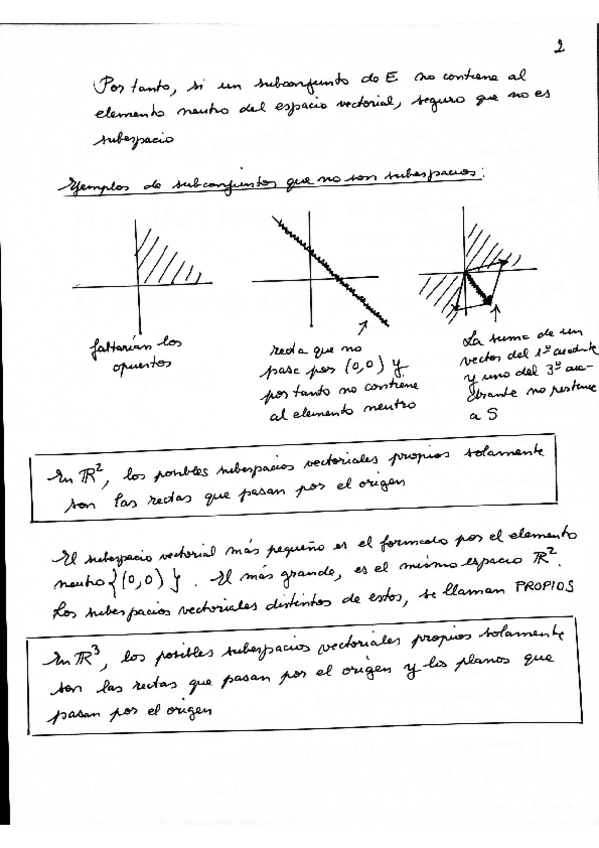 2
Por tanto, si un subconjunto de E no contiene al
elemento neutro del espacio vectorial, seguro que no es
subespacio
Ejemplos de subconjuntos que no son subespacios:
faltarían los
opuestos
recta que no
pasa por (0,0) y
por tanto no contiene
al elemento neutro
La suma de un
vector del 1º cuadrante
y uno del 3º cua-
drante no pertenece
a S
En ℝ², los posibles subespacios vectoriales propios solamente
son las rectas que pasan por el origen
El subespacio vectorial más pequeño es el formado por el elemento
neutro {(0,0)}. El más grande, es el mismo espacio ℝ².
Los subespacios vectoriales distintos de estos, se llaman PROPIOS
En ℝ³, los posibles subespacios vectoriales propios solamente
son las rectas que pasan por el origen y los planos que
pasan por el origen